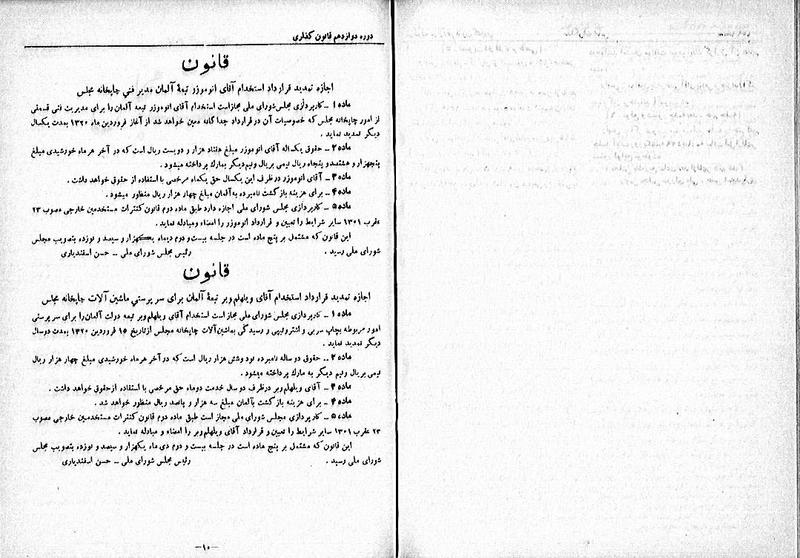 دوره دوازدهم قانون گذاری
قانون
اجازه تمدید قرارداد استخدام آقای اتوموزر تبعهٔ آلمان مدیر فنی چاپخانه مجلس
ماده ۱ ـ کارپردازی مجلس شورای ملی مجاز است استخدام آقای اتوموزر تبعه آلمان را برای مدیریت فنی قسمتی
از امور چاپخانه مجلس که خصوصیات آن در قرارداد جداگانه معین خواهد شد از آغاز فروردین ماه ۱۳۲۰ بمدت یکسال
دیگر تمدید نماید .
ماده ۲ ـ حقوق یکساله آقای اتوموزر مبلغ هفتاد هزار و دویست ریال است که در آخر هر ماه خورشیدی مبلغ
پنجهزار و هشتصد و پنجاه ریال نیمی بریال و نیم دیگر بمارک پرداخته میشود .
ماده ۳ ـ آقای اتوموزر در ظرف این یکسال حق یکماه مرخصی با استفاده از حقوق خواهد داشت .
ماده ۴ ـ برای هزینه بازگشت نامبرده به آلمان مبلغ چهار هزار ریال منظور میشود .
ماده ۵ ـ کارپردازی مجلس شورای ملی اجازه دارد طبق ماده دوم قانون کنترات مستخدمین خارجی مصوب ۲۳
عقرب ۱۳۰۱ سایر شرایط را تعیین و قرارداد اتوموزر را امضاء و مبادله نماید .
این قانون که مشتمل بر پنج ماده است در جلسه بیست و دوم دیماه یکهزار و سیصد و نوزده بتصویب مجلس
شورای ملی رسید . رئیس مجلس شورای ملی ـ حسن اسفندیاری
قانون
اجازه تمدید قرارداد استخدام آقای ویلهلم وبر تبعهٔ آلمان برای سرپرستی ماشین آلات چاپخانه مجلس
ماده ۱ ـ کارپردازی مجلس شورای ملی مجاز است استخدام آقای ویلهلم وبر تبعه دولت آلمان را برای سرپرستی
امور مربوطه بچاپ سربی و انترتیپی و رسیدگی بماشین آلات چاپخانه مجلس از تاریخ ۱۵ فروردین ۱۳۲۰ بمدت دو سال
دیگر تمدید نماید .
ماده ۲ ـ حقوق دو ساله نامبرده نود و شش هزار ریال است که در آخر هر ماه خورشیدی مبلغ چهار هزار ریال
نیمی بریال و نیم دیگر به مارک پرداخته میشود .
ماده ۳ ـ آقای ویلهلم وبر در ظرف دو سال خدمت دو ماه حق مرخصی با استفاده از حقوق خواهد داشت .
ماده ۴ ـ برای هزینه بازگشت بآلمان مبلغ سه هزار و پانصد ریال منظور خواهد شد .
ماده ۵ ـ کارپردازی مجلس شورای ملی مجاز است طبق ماده دوم قانون کنترات مستخدمین خارجی مصوب
۲۳ عقرب ۱۳۰۱ سایر شرایط را تعیین و قرارداد آقای ویلهلم وبر را امضاء و مبادله نماید .
این قانون که مشتمل بر پنج ماده است در جلسه بیست و دوم دی ماه یکهزار و سیصد و نوزده بتصویب مجلس
شورای ملی رسید . رئیس مجلس شورای ملی ـ حسن اسفندیاری
ـ۱۰ـ